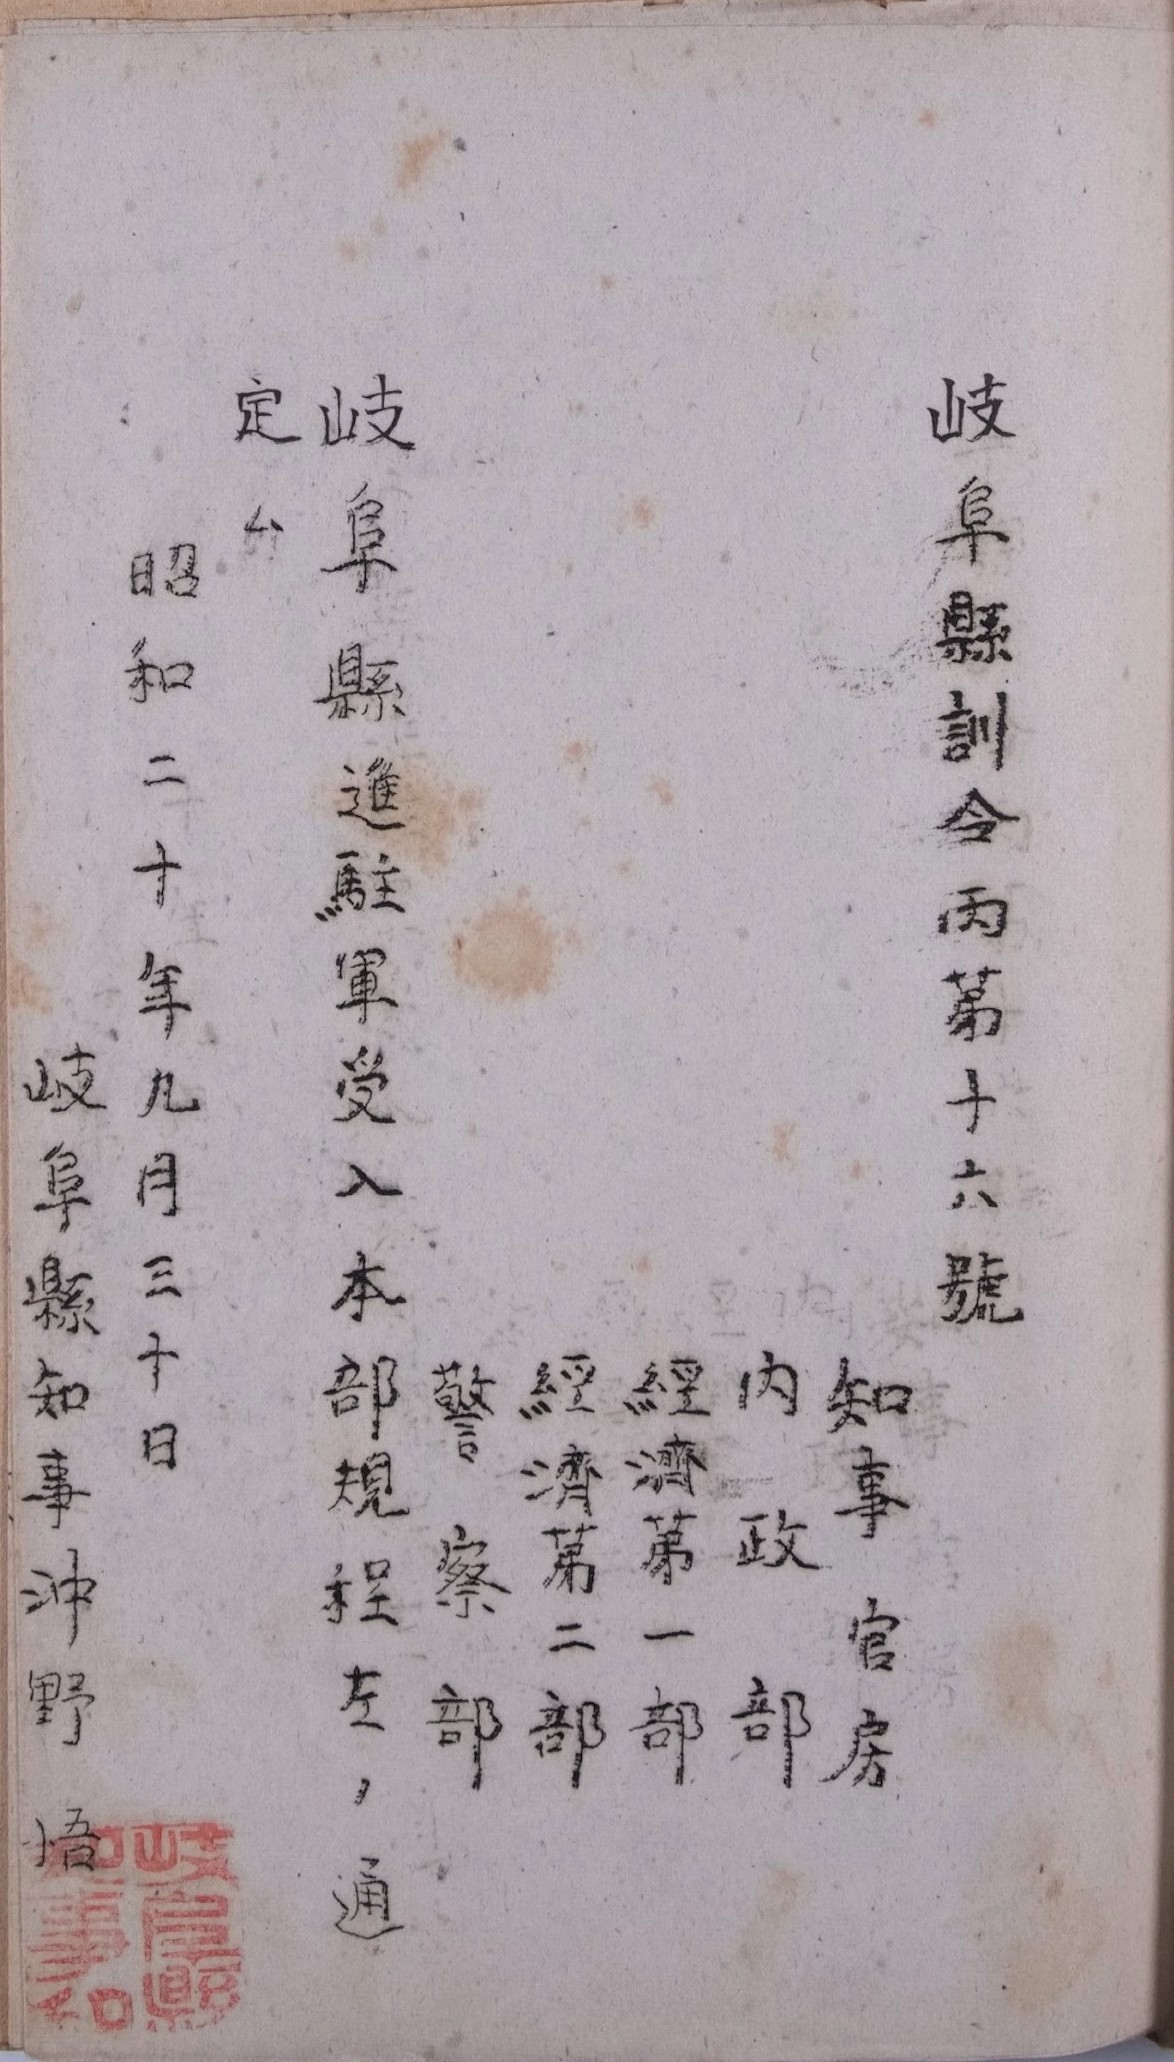 岐阜縣訓令丙第十六號
知事官房
内政部
經濟第一部
經濟第二部
警察部
岐阜縣進駐軍受入本部規程左ノ通
定ム
昭和二十年九月三十日
岐阜縣知事沖野悟
岐阜縣
知事印